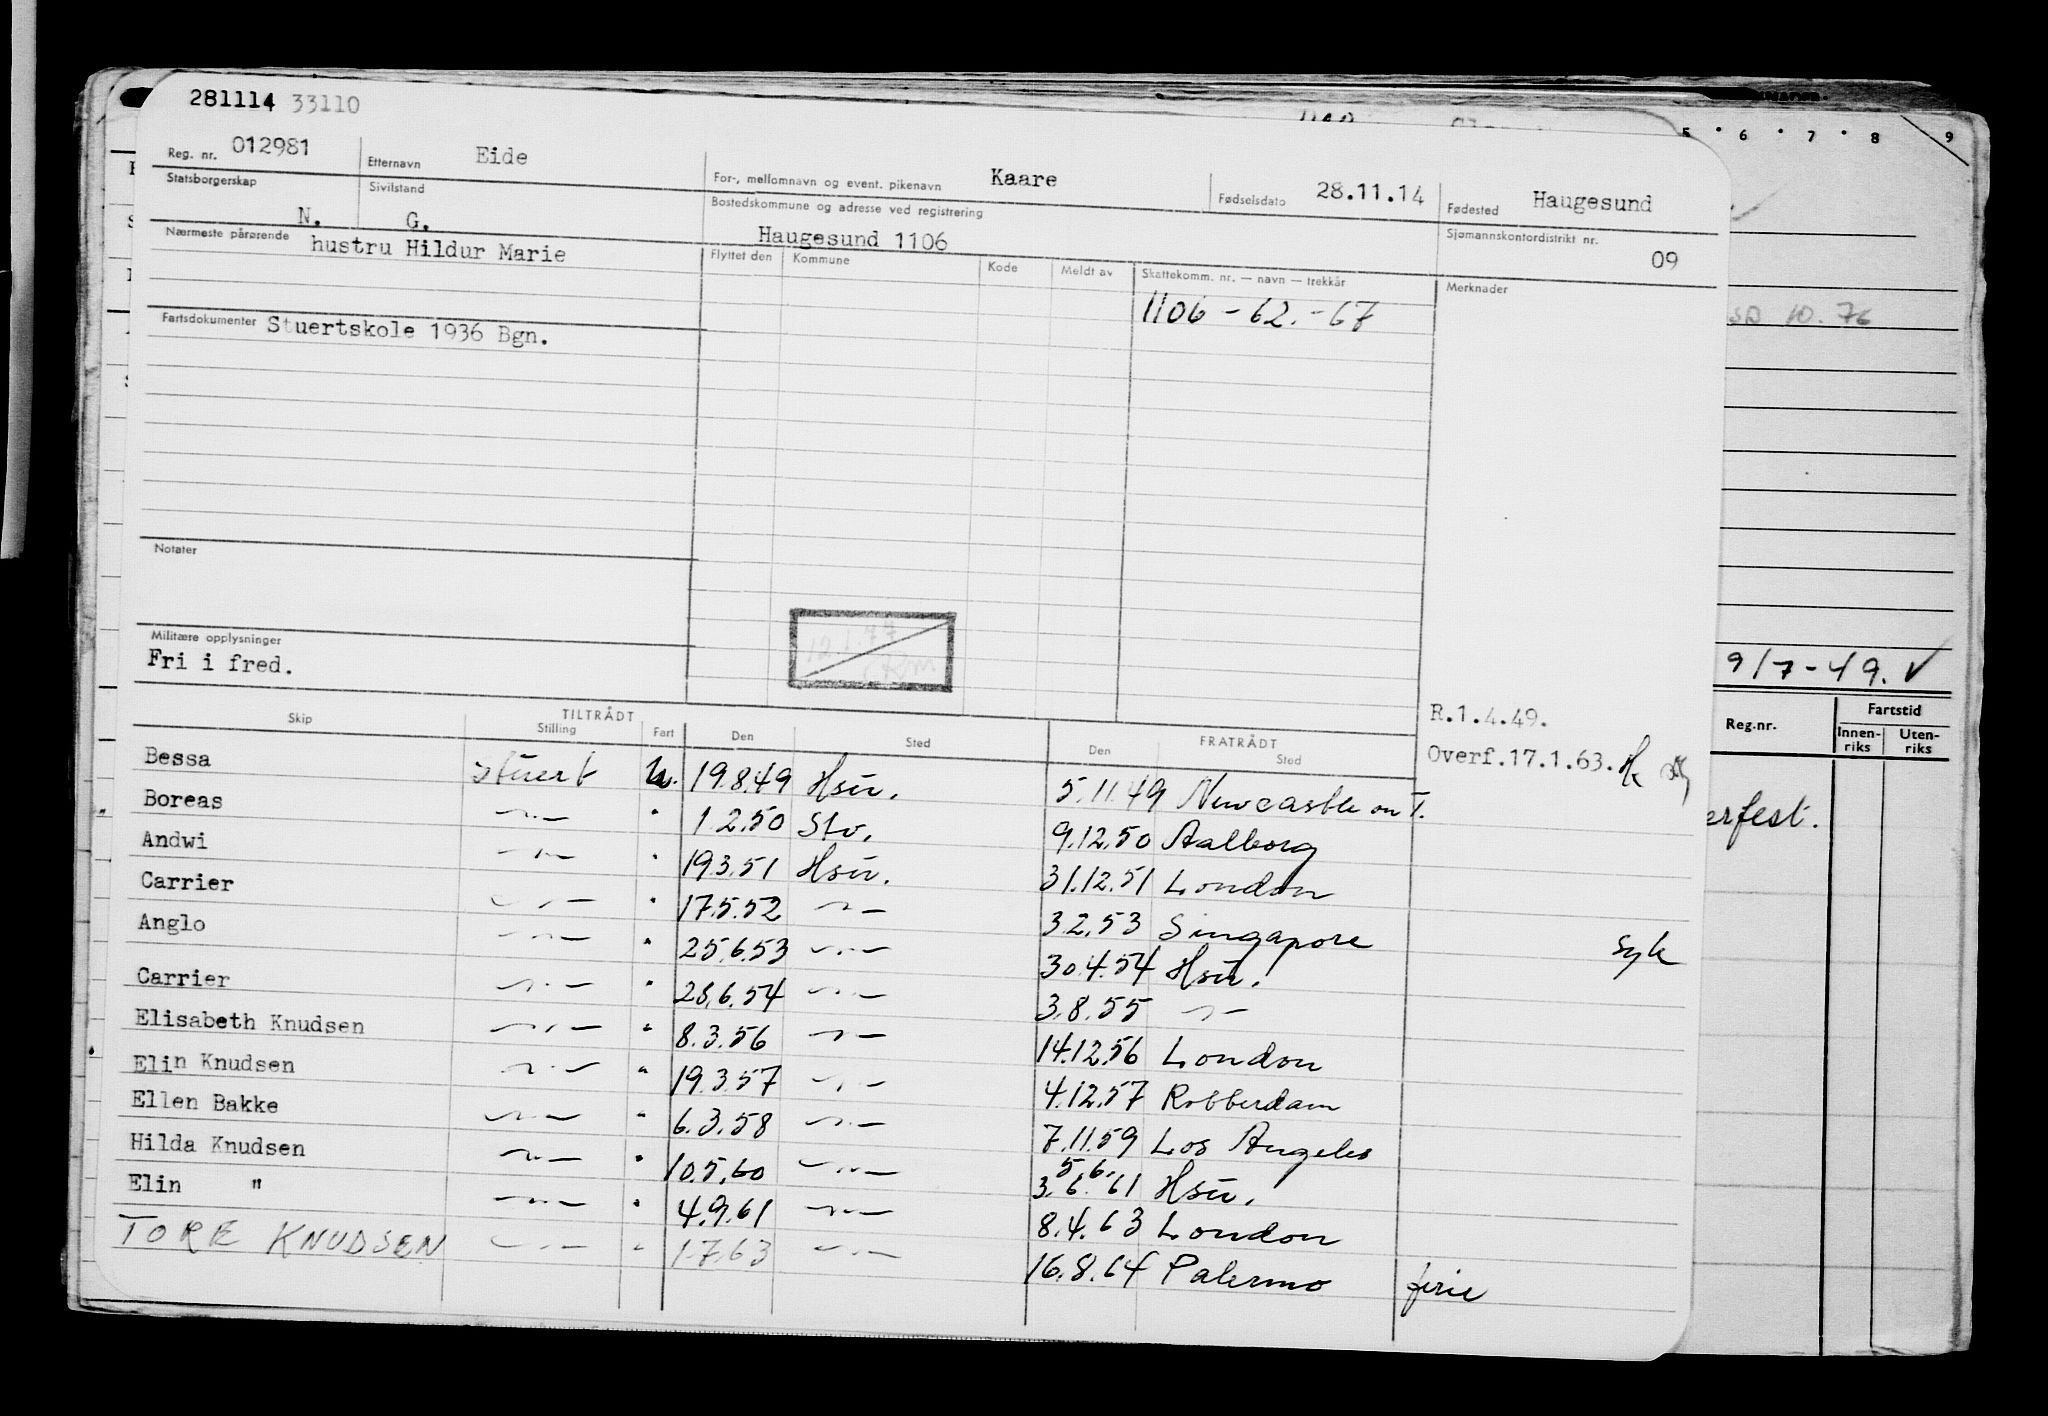 281114 33110
5 • 6 • 7 • 8 9
Reg. nr. 012981 Etternavn Eide For-, mellomnavn og event. pikenavn Kaare Fødselsdato 28.11.14 Fødested Haugesund
Statsborgerskap N. Sivilstand G. Bostedskommune og adresse ved registrering Haugesund 1106 Sjømannskontordistrikt nr. 09
Nærmeste pårørende hustru Hildur Marie Flyttet den Kommune Kode Meldt av Skattekomm. nr. — navn — trekkår Merknader
1106 - 62. - 67
10. 76
Fartsdokumenter Stuertskole 1936 Bgn.
Notater
Militære opplysninger
Fri i fred.
12.1.77
9/7-49. ✓
R.1.4.49.
Overf.17.1.63.
Reg.nr. Fartstid
Innen-riks Uten-riks
TILTRÅDT FRATRÅDT
Skip Stilling Fart Den Sted Den Sted
Bessa stuert U. 19.8.49 Hsu. 5.11.49 Newcastle on T.
erfest.
Boreas —"— " 1.2.50 Stv. 9.12.50 Aalborg
Andwi —"— " 19.3.51 Hsu. 31.12.51 London
Carrier —"— " 17.5.52 —"— 3.2.53 Singapore syk
Anglo —"— " 25.6.53 —"— 30.4.54 Hsu.
Carrier —"— " 28.6.54 —"— 3.8.55 —"—
Elisabeth Knudsen —"— " 8.3.56 —"— 14.12.56 London
Elin Knudsen —"— " 19.3.57 —"— 4.12.57 Rotterdam
Ellen Bakke —"— " 6.3.58 —"— 7.11.59 Los Angeles
5.6.
Hilda Knudsen —"— " 10.5.60 —"— 3.6.61 Hsu.
Elin " —"— " 4.9.61 —"— 8.4.63 London
TORE KNUDSEN —"— " 1.7.63 —"— 16.8.64 Palermo ferie